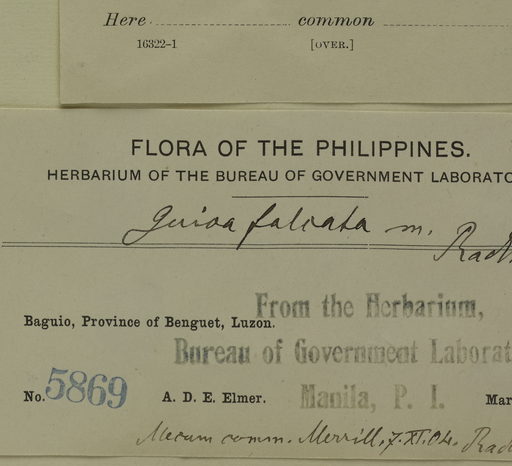 Here common
16322-1 [OVER.]
FLORA OF THE PHILIPPINES.
HERBARIUM OF THE BUREAU OF GOVERNMENT LABORATO
Guioa falcata m.
Radl
From the Herbarium,
Baguio, Province of Benguet, Luzon.
Bureau of Government Laborat
No. 5869 A. D. E. Elmer. Manila, P. I. Mar
Mecum comm. Merrill. 7.XI.04. Radl